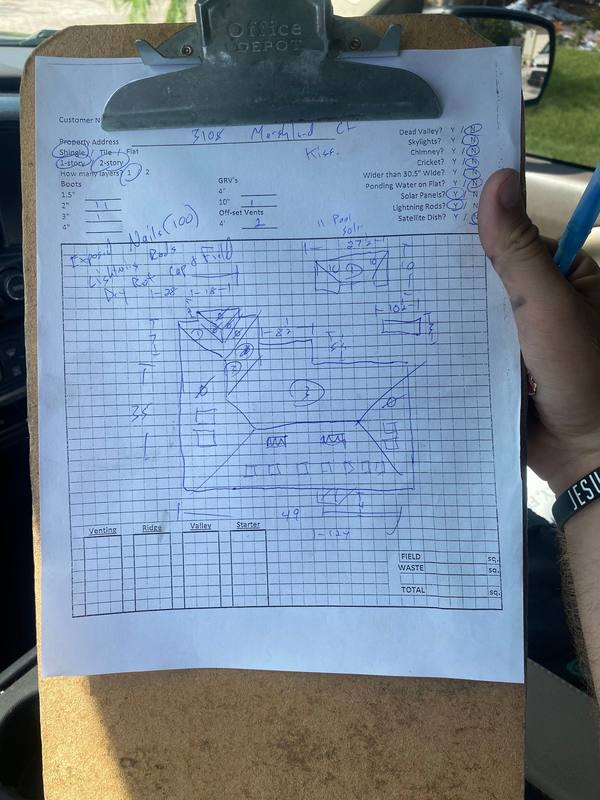 Office
DEPOT
Customer N
Property Address 3108 Marshland Ct
Kiss.
Shingle / Tile / Flat
1-story / 2-story
How many layers? 1 2
Boots
1.5"
2" 11
3" 1
4"
GRV's
4"
10" 1
Off-set Vents
4' 2
Dead Valley? Y / N
Skylights? Y / N
Chimney? Y / N
Cricket? Y / N
Wider than 30.5" Wide? Y / N
Ponding Water on Flat? Y / N
Solar Panels? Y / N
Lightning Rods? Y / N
Satellite Dish? Y / N
Exposed Nails (100)
Lightning Rods
Dry Rot Cap & Field
11 Pool
Solar
28 18
35
3
49
Venting Ridge Valley Starter
FIELD sq.
WASTE sq.
TOTAL sq.
JESU